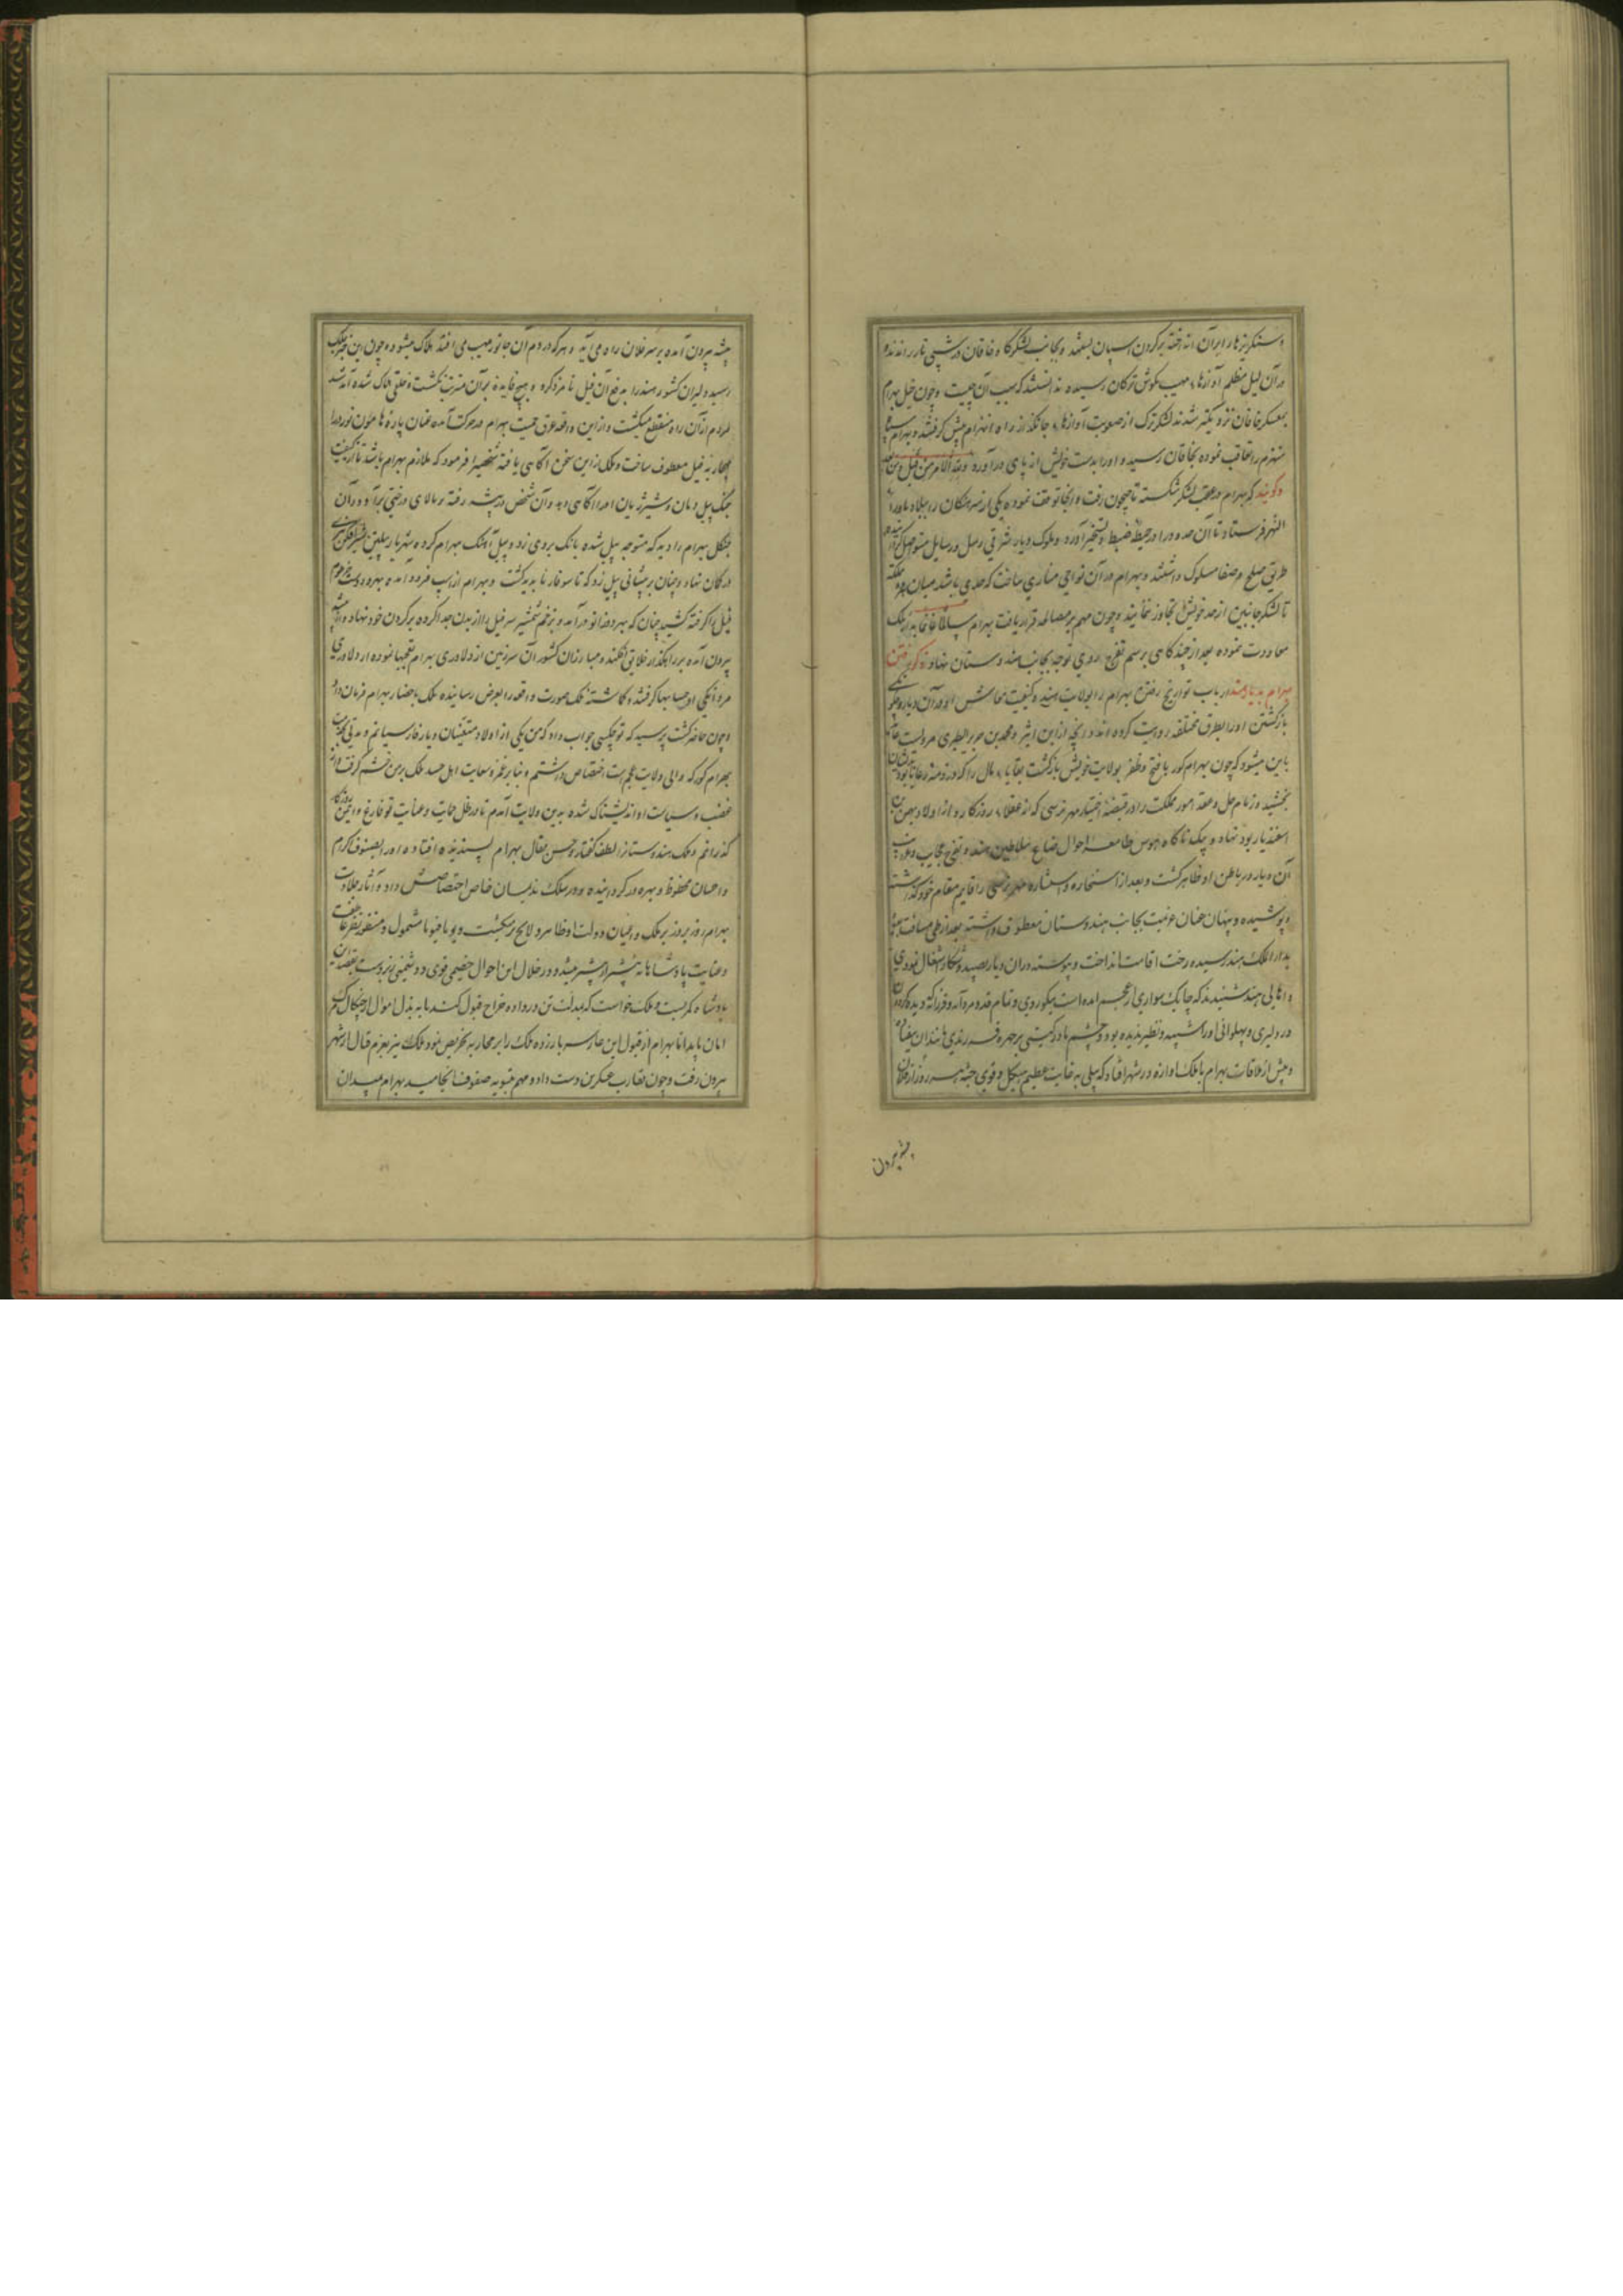 و سنگریزها در ایران انداخته بر گردن اسپان بستند و بجانب لشکرگاه خاقان در شبی تار راندند
در آن لیل مظلم آوازهاء مهیب بگوش ترکان رسیده ندانستند که سبب آن چیست و چون خیل بهرام
بمعسکر خاقان نزدیکتر شدند لشکر ترک از صعوبت آوازهاء جانگداز راه انهزام پیش گرفتند و بهرام سپاه
منهزم را تعاقب نموده بخاقان رسیده و اورا بدست خویش از پای درآورد و لله الامر من قبل و من بعد
و گویند که بهرام در عقب لشکر شکسته تا جیحون رفت و آنجا توقف نموده یکی از سرهنگان را ببلاد ماوراء
النهر فرستاد تا آن حدود را در حیطه ضبط و تسخیر آورد و ملوک دیار شرقی رسل و رسایل
طریق صلح و صفا مسلوک داشتند و بهرام در آن نواحی مناری ساخت که حدی باشد میان دو مملکت
تا لشکر جانبین از حد خویش تجاوز ننمایند و چون مهم بر مصالحه قرار یافت بهرام سالما غانما بدار ملک
معاودت نموده بعد از چند گاهی برسم تفرج روی توجه بجانب هندوستان نهاد ذکر رفتن
بهرام بدیار هند ارباب تواریخ رفتن بهرام را بولایت هند و کیفیت معاش او در آن دیار و چگونگی
بازگشتن اورا بطرق مختلفه روایت کرده اند و آنچه از ابن اثیر و محمد بن جریر الطبری مرویست
باین میشود که چون بهرام گور با فتح و ظفر بولایت خویش بازگشت بقایاء مال را که در ذمه رعایا بود بدیشان
بخشید و زمام حل و عقد امور مملکت را در قبضه اختیار مهر نرسی که از عقلاء روزگار و از اولاد بهمن بن
اسفندیار بود نهاد و بیک ناگاه هوس مطالعه احوال سلاطین هند و تفرج عجایب و غرایب
آن دیار در باطن او ظاهر گشت و بعد از استخاره و استشاره مهر نرسی را قایم مقام خود گذاشته
و پوشیده و پنهان عنان عزیمت بجانب هندوستان معطوف داشته و بعد از طی مسافت
بدار الملک هند رسیده رخت اقامت انداخت و پیوسته در آن دیار بصید و شکار اشتغال نمودی
و اهالی هند شنیدند که چابک سواری از عجم آمده است نیکو روی و تمام قد و مردانه و فرزانه که دیده گردون
در دلیری و پهلوانی اورا شبیه و نظیر ندیده بود و چشم مادر گیتی بر چهره فرزندی مانند آن نیفتاده
و پیش از ملاقات بهرام با ملک آوازه در شهر افتاد که پیلی به غایت عظیم هیکل و قوی جثه هر روز از فلان
بیشه بیرون
بیشه بیرون آمده بر سر فلان راه می آید و هر که در دم آن جانور مهیب می افتد هلاک میشود و چون این خبر بملک
رسید دلیران کشور هند را بدفع آن فیل نامزد کرد و هیچ فایده بر آن مترتب نگشت و خلقی هلاک شده آمد شد
مردم از آن راه منقطع میگشت و از این واقعه عرق حمیت بهرام در حرکت آمده عنان باره هامون نورد را
بمحاربه فیل معطوف ساخت و ملک از این سخن آگاهی یافته شخصی را فرمود که ملازم بهرام باشد تا از کیفیت
جنگ پیل دمان و شیر ژیان اورا آگاهی دهد و آن شخص در بیشه رفته و بالای درختی برآمد و در آن
جنگل بهرام را دید که متوجه پیل شده بانگ بر وی زد و پیل آهنگ بهرام کرده شهریار پیلتن تیر
در کمان نهاد و چنان بر پیشانی پیل زد که تا سوفار ناپدید گشت و بهرام از اسپ فرود آمده بهر دو دست خرطوم
فیل را گرفته کشید چنان که بهر دو زانو درآمد و بزخم شمشیر سر فیل را از بدن جدا کرده بر گردن خود نهاد و از بیشه
بیرون آمده بر راهگذار خلایق افکند و مبارزان کشور آن سرزمین از دلاوری بهرام تعجبها نموده از دلاوری و
مردانگی او حسابها گرفتند و گماشته ملک صورت واقعه را بعرض رسانیده ملک باحضار بهرام فرمان داد
و چون حاضر گشت پرسید که تو چکسی جواب داد که من یکی از اولاد متعینان دیار فارسیانم و مدتی بخدمت
بهرام گور که والی ولایت عجم است اختصاص داشتم و بنابر غمز و سعایت اهل حسد ملک بر من خشم گرفت و از
غضب و سیاست او اندیشناک شده بدین ولایت آمدم تا در ظل حمایت و عنایت تو فارغ و ایمن روزگار
گذرانم و ملک هندوستان را لطف گفتار و حسن مقال بهرام پسندیده افتاده اورا بصنوف اکرام
و احسان محظوظ و بهره ور گردانیده و در سلک ندیمان خاص اختصاصش داد و آثار جلادت
بهرام روز بروز بر ملک و اعیان دولت او ظاهر و لایح تر میگشت و یوما فیوما مشمول و منظور نظر عاطفت
و عنایت پادشاهانه بیشتر از پیشتر میشد و در خلال این احوال خصمی قوی و دشمنی زبردست بقصد این
پادشاه کمر بست و ملک خواست که بمذلت تن در داده خراج قبول کند تا به بذل اموال از چنگال مرگ
امان یابد اما بهرام از قبول این عار سر باز زده ملک را بر محاربه تحریص نمود و ملک نیز بعزم قتال از شهر
بیرون رفت و چون تقارب عسکرین دست داد و مهم بتسویه صفوف انجامید بهرام بمیدان